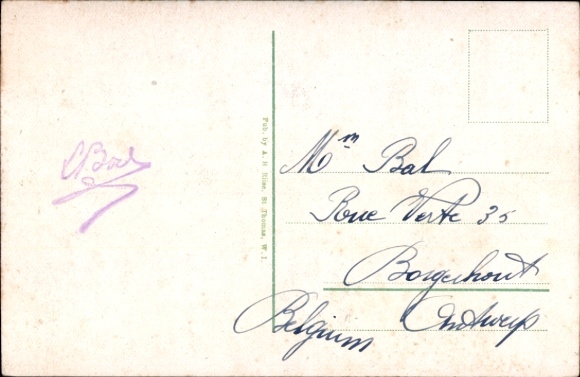 Bal
Pub. by A. H. Riise, St. Thomas, W. I.
Mᵐ Bal
Rue Verte 35
Borgerhout
Antwerp
Belgium